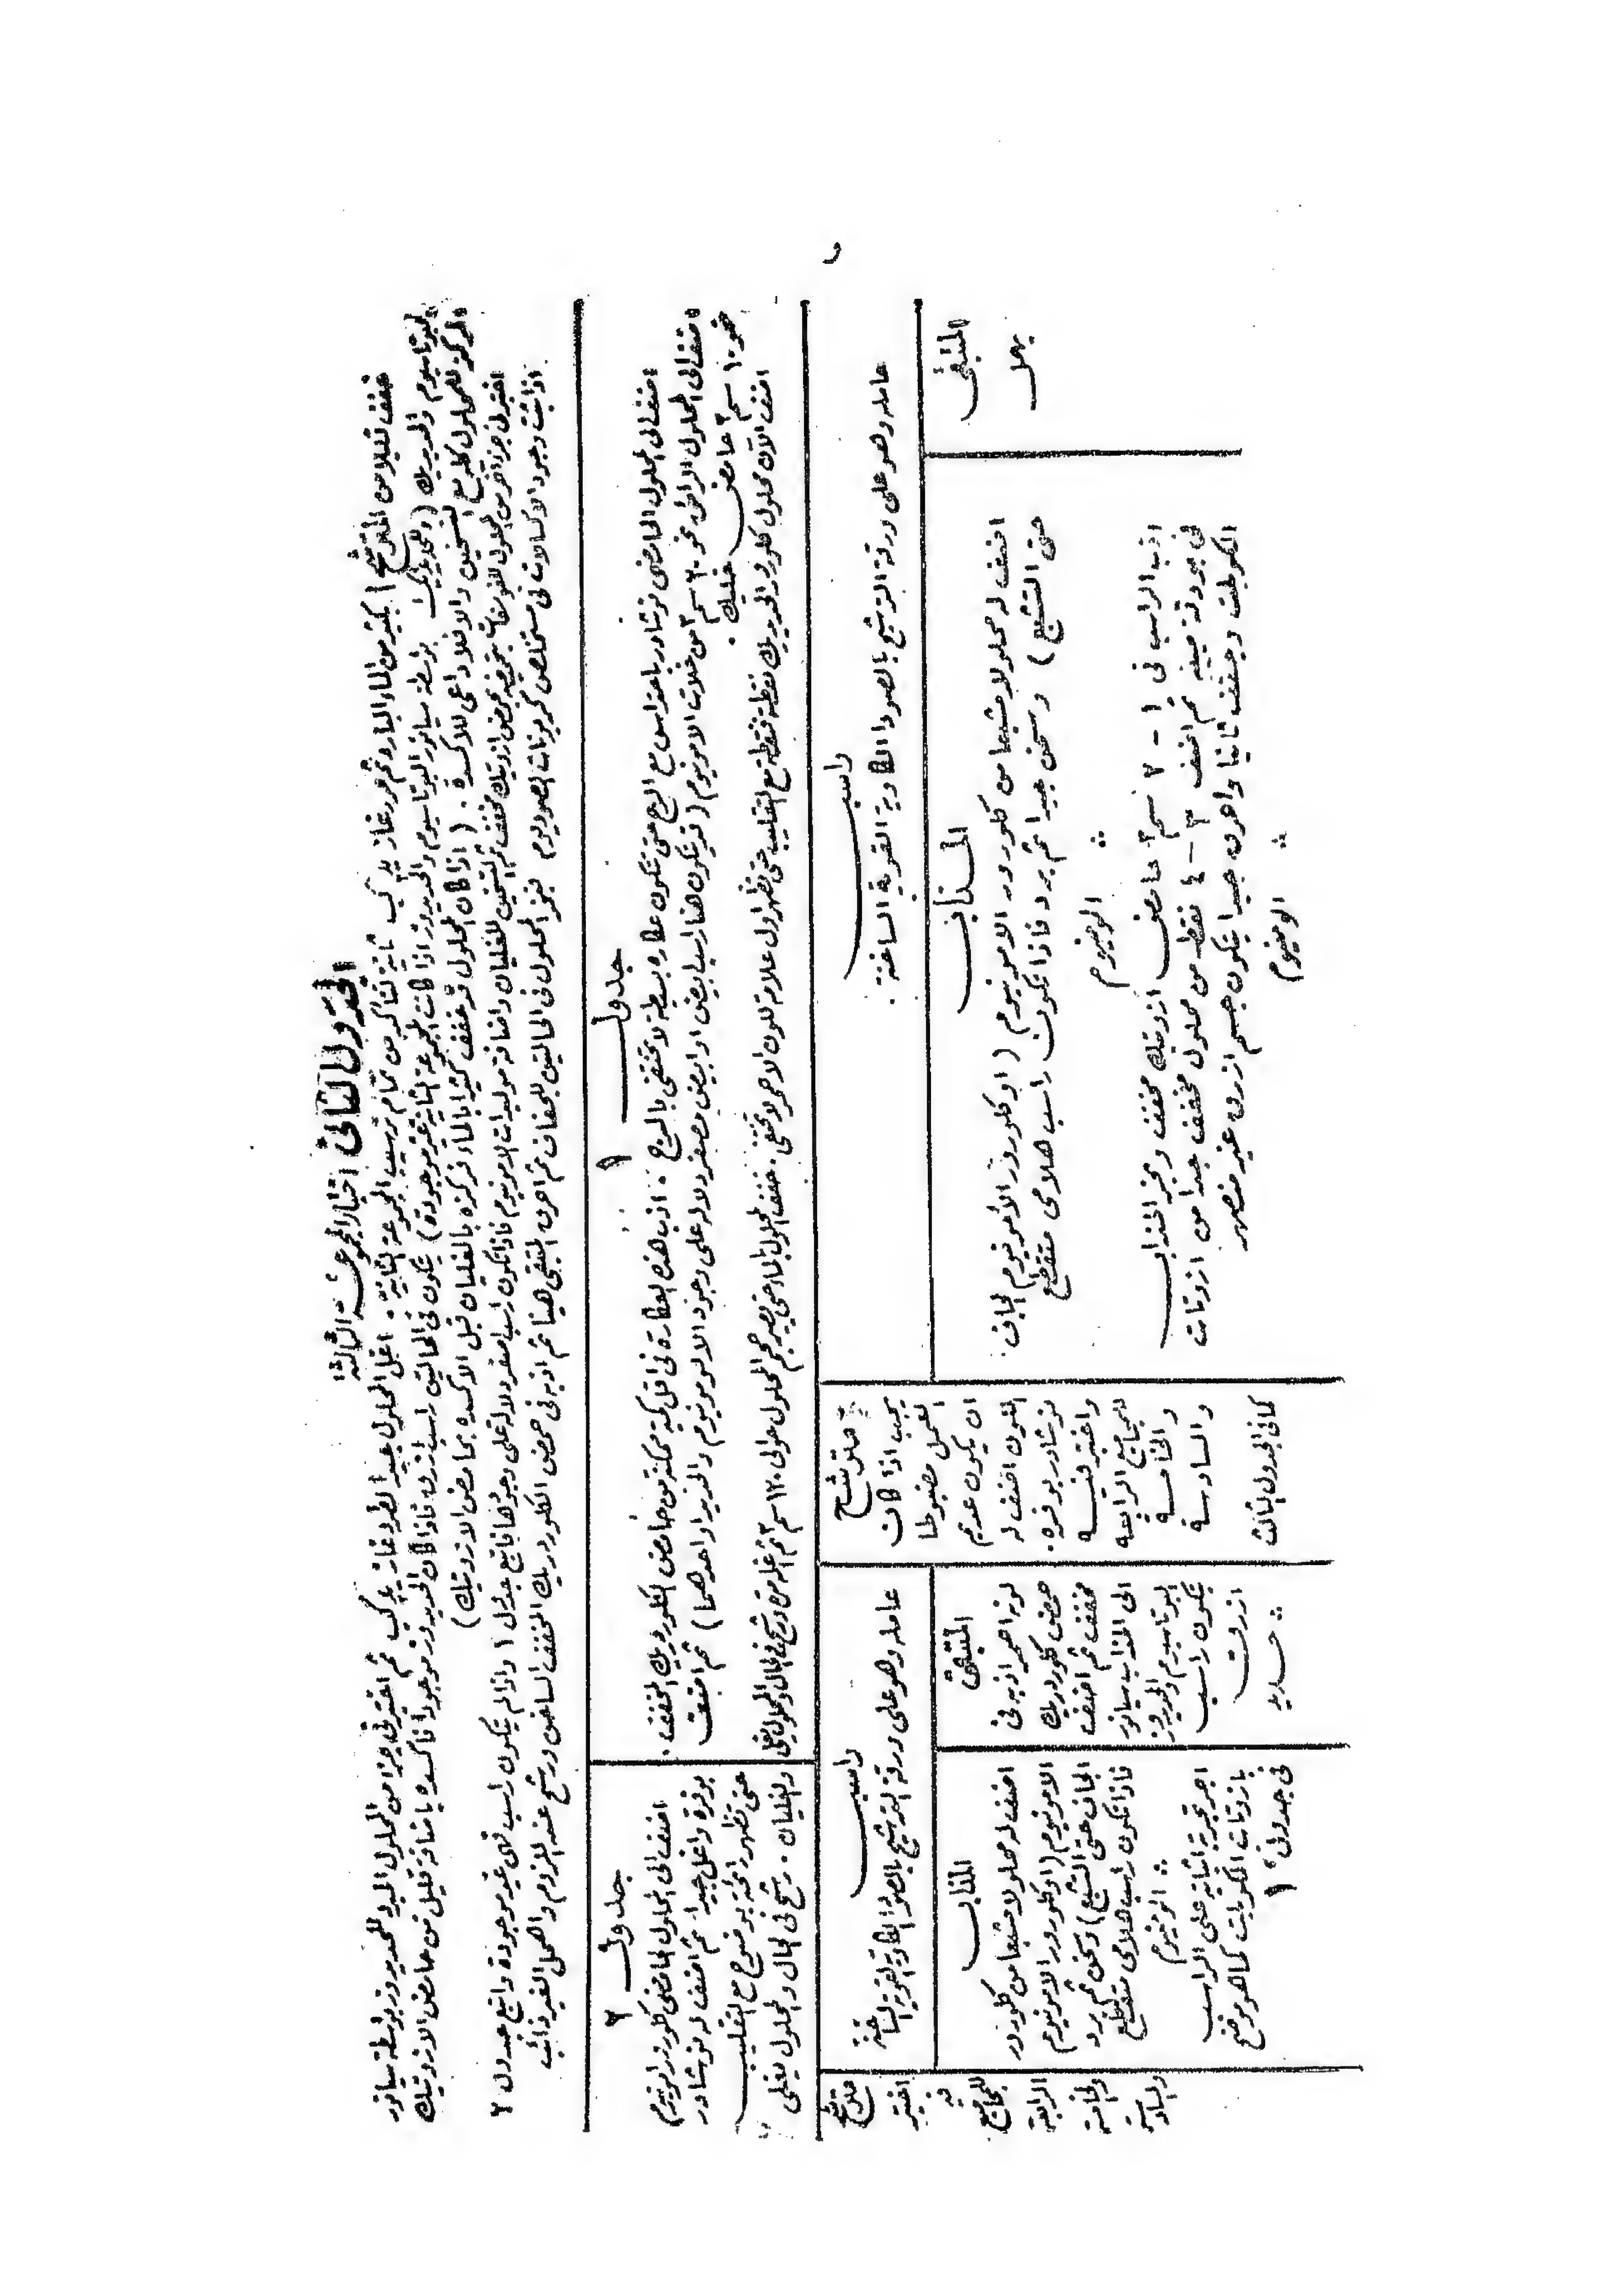 الجدول الثاني اختبار المجموعة الثالثة
خفف قليلا من المترشح بكثير من الماء البارد ثم مرر غاز يد٢ كب ثانية لتتأكد من تمام ترسيب المجموعة الثانية . اغل المحلول جيدا لطرد غاز يد٢ كب ثم اختبر في جزء من المحلول المبرد للحديدوز بواسطة سيانور
البوتاسيوم والحديديك (وللحديديك بواسطة سيانور البوتاسيوم والحديدوز اذا كانت المجموعة الثانية غير موجودة) يتكون في الحالتين راسب ازرق فاذا كان الحديدوز موجودا فأكسده باضافة قليل من حامض الازوتيك
المركز للمحلول كله مع التسخين والا فلا داعي للأكسدة . (اذا كان المحلول قد خفف كثيرا بالماء فركزه بالغليان قبل الاكسده بحامض الازوتيك)
اختبر في جزء آخر من المحلول للفوسفات بتحميضه بحمض ازوتيك مخفف ثم التسخين للغليان واضافة موليبدات الامونيوم فاذا تكون راسب اصفر دلالة على وجودها فاتبع جدول ١ واذا لم يتكون راسب فهي غير موجودة واتبع جدول ٢
اذا ثبت وجود الاكسالات في مستخلص كربونات الصوديوم فبخر المحلول في الحالتين للجفاف ثم احرق المتبقي هينا ثم اذبه في حمض الكلوردريك المخفف الساخن ورشح عند اللزوم واهمل الغير ذائب
جدول ١
اضف الى المحلول الحامضي نوشادر باحتراس مع الرج حتى تتكون عكاره بسيطة لا تختفي بالرج . اذب هذه العكارة في اقل كمية ممكنة من حامض الكلوردريك المخفف .
اضف الى المحلول الرائق نحو ٢٠ سم٣ من خلات الامونيوم (قد يتكون هنا راسب ابيض او ابيض مصفر دلالة على وجود الالومونيوم والحديد او احدهما) ثم اضف
نحو ١٠ سم٣ حامض خليك .
اضف الآن محلول كلورور الحديديك نقطة فنقطة مع التقليب حتى تظهر اول علامة للون الاحمر لا تختفي . خفف المحلول بالماء حتى يصير حجم المحلول حوالي ١٢٠ سم٣ ثم اغله مرة ورشح في الحال والمحلول يغلي
جدول ٢
اضف الى المحلول الحامضي كلورور امونيوم
بوفرة واغل جيدا ثم اضف له نوشادر
حتى تظهر رائحته بوضوح مع التقليب
والغليان . رشح في الحال والمحلول يغلي
راسب
عامله وهو على ورقة الترشيح بالصودا الكاوية القوية الساخنة .
المتبقى
يهمل
المذاب
اضف له محلولا مشبعا من كلورور الامونيوم (او كلورور الامونيوم الجاف
حتى التشبع) وسخن جيدا ثم برد فاذا تكون راسب هلامي متقطع
∴ الومنيوم
اذب الراسب في ١ - ٢ سم٣ حامض ازوتيك مخفف وبخر المذاب
في بودقة صينية ثم اضف ٣ - ٤ نقط من محلول مخفف جدا من ازوتات
الكوبلت وجفف ثانيا واحرق جيدا يتكون جسم ازرق غير منصهر
∴ الومنيوم
مترشح
يجب اذا كان
العمل مضبوطا
ان يكون عديم
اللون اضف له
نوشادر بوفره .
واختبر فيه
للمجاميع الرابعه
والخامسة
والسادسة
كما في الجدول الثالث
راسب
عامله وهو على ورقة الترشيح بالصودا الكاوية القوية الساخنة
المتبقى
لونه احمر اذبه في
حمض كلوردريك
مخفف ثم اضف
الى المذاب سيانور
البوتاسيوم والحديدوز
يتكون راسب
ازرق
∴ حديد
المذاب
اضف له محلولا مشبعا من كلورور
الامونيوم (او كلورور الامونيوم
الجاف حتى التشبع) وسخن ثم برد
فاذا تكون راسب هلامي متقطع
∴ الومنيوم
اجر تجربة اثباتية على الراسب
بازوتات الكوبلت كما هو موضح
في جدول ١
مترشح
اختبر فيه
للمجاميع
الرابعة
والخامسة
والسادسة